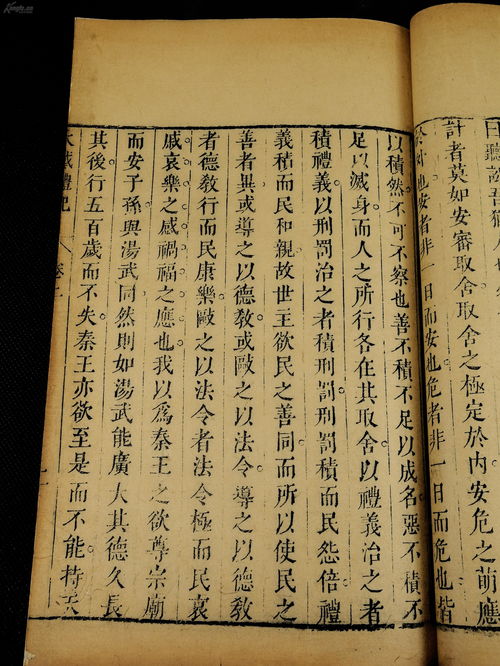 曰聽訟吾猶人也
計者莫如安審取舍之極定於內安危之萌應
於外也安者非一日而安也危者非一日而危也皆
以積然不可不察也善不積不足以成名惡不積不
足以滅身而人之所行各在其取舍以禮義治之者
積禮義以刑罰治之者積刑罰刑罰積而民怨倍禮
義積而民和親故世主欲民之善同而所以使民之
善者異或導之以德教或敺之以法令導之以德教
者德教行而民康樂敺之以法令者法令極而民哀
戚哀樂之感禍福之應也我以爲秦王之欲尊宗廟
而安子孫與湯武同然則如湯武能廣大其德久長
其後行五百歲而不失秦王亦欲至是而不能持天
大戴禮記 卷二